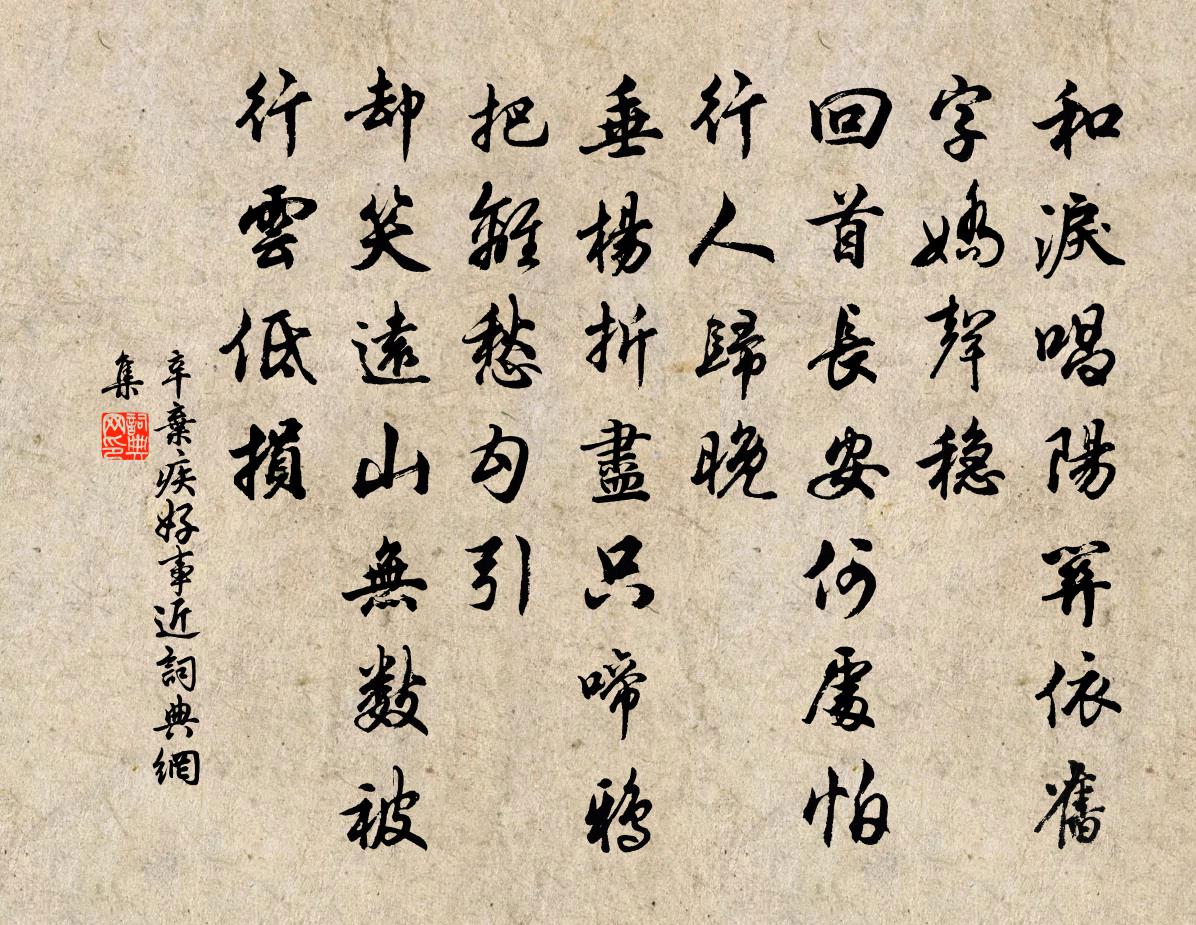 和淚唱陽關依舊
字嬌聲穩
回首長安何處怕
行人歸晚
垂楊折盡只啼鴉
把離愁勾引
却笑遠山無數被
行雲低損
辛棄疾好事近詞典網
集
詞典
网印